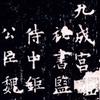 九成宮
秘書監
侍中鉅
公臣魏